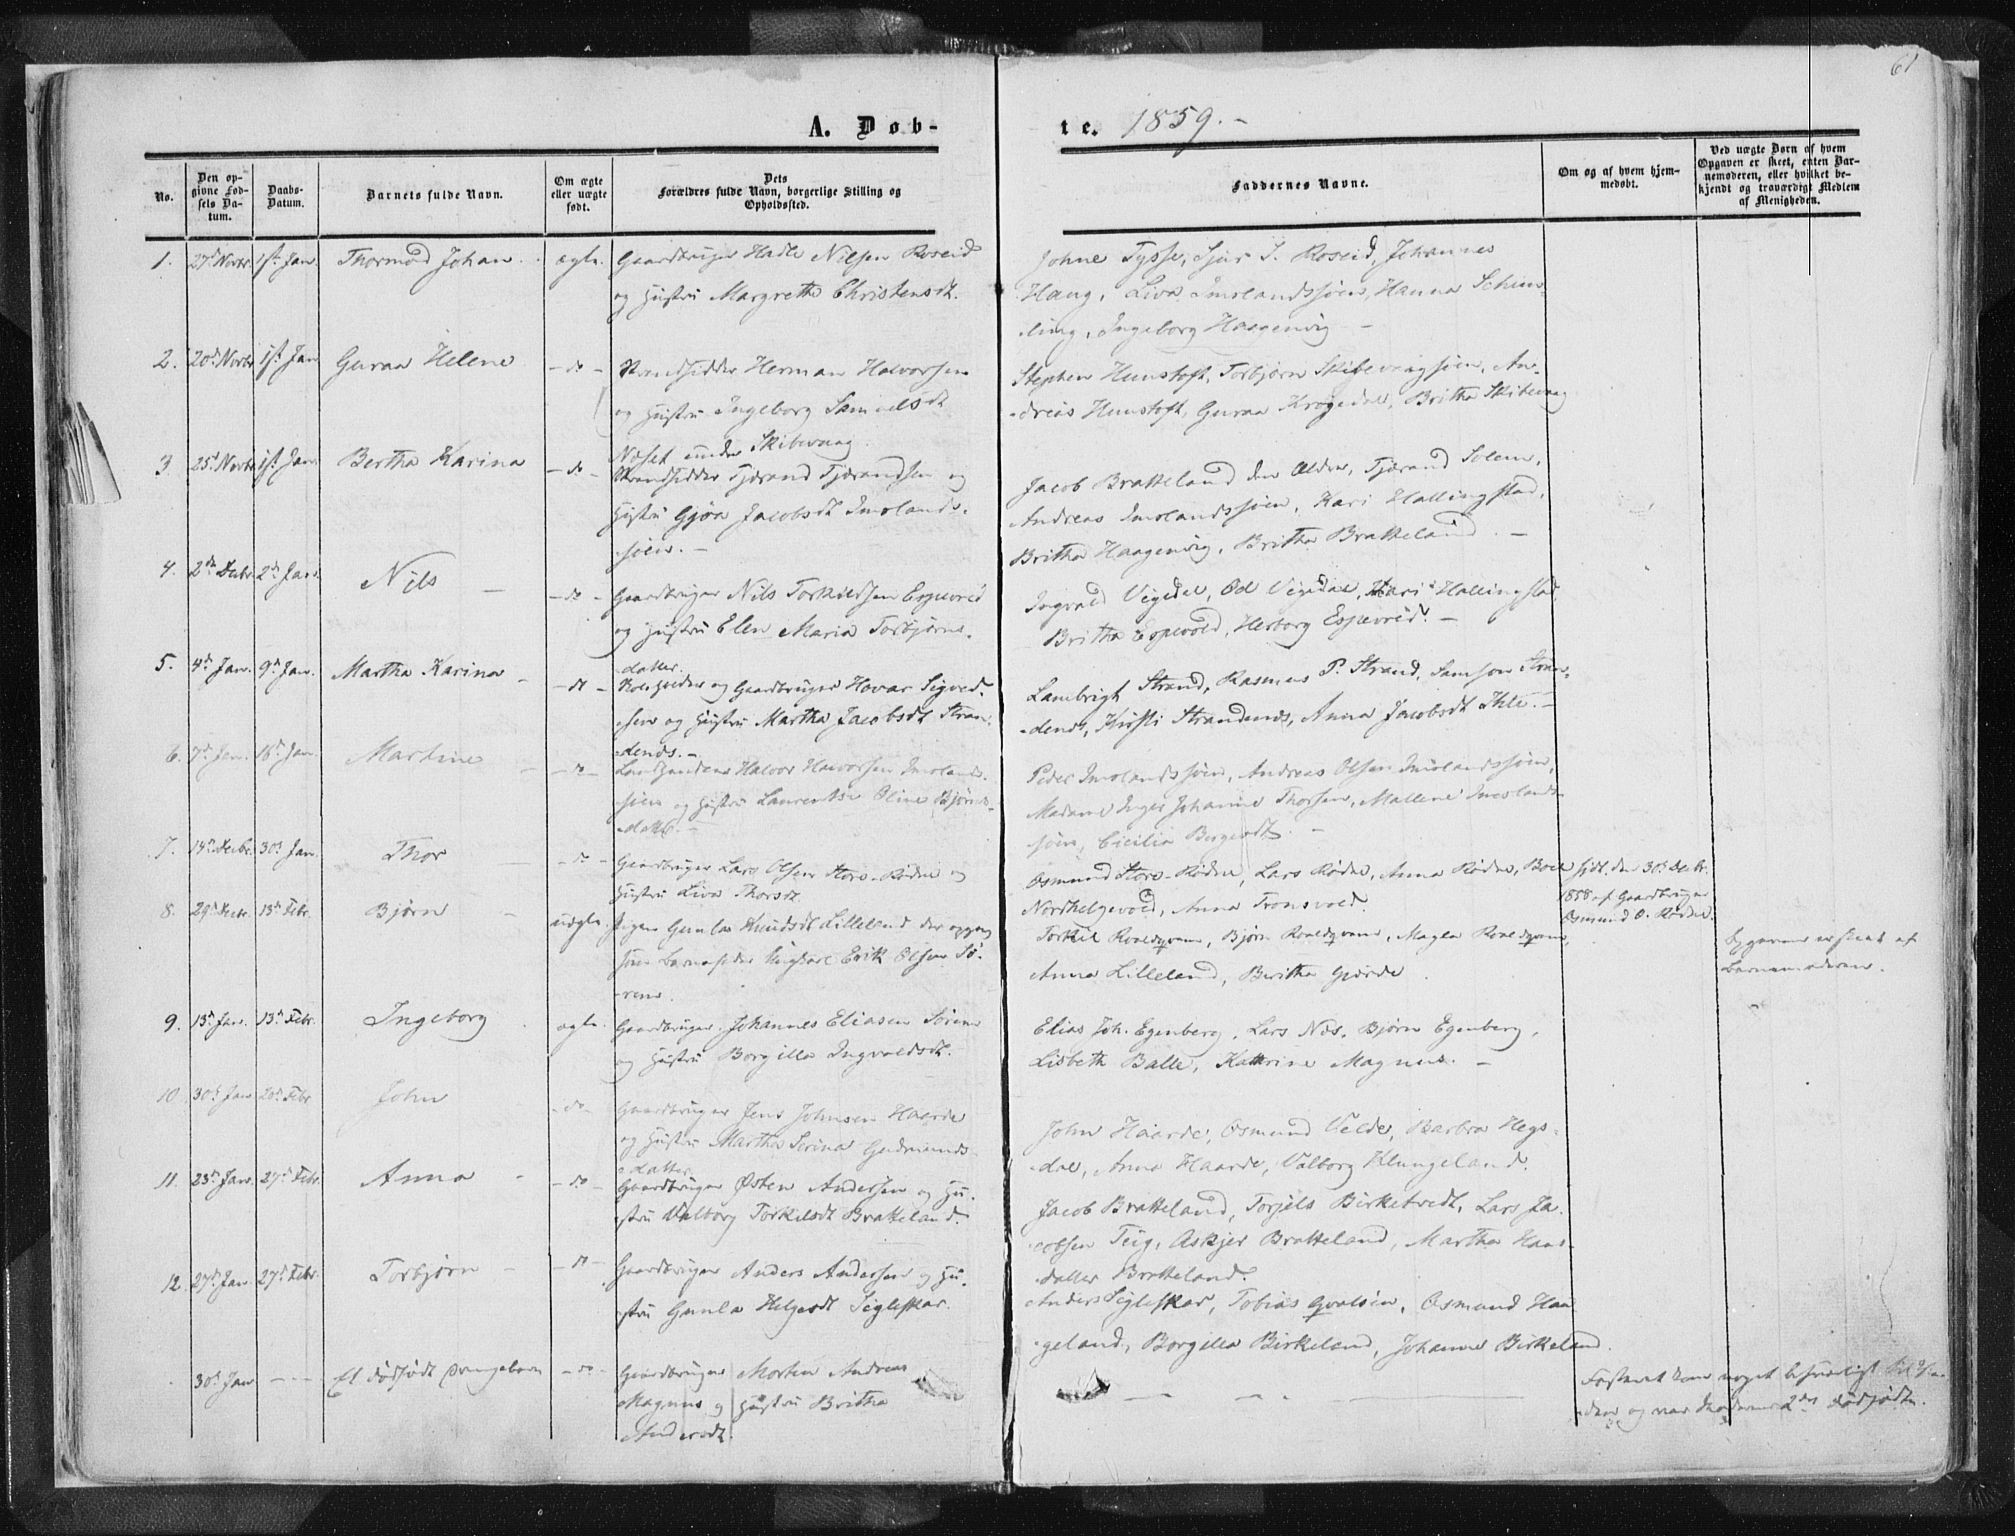 61
A. Døb-
te. 1859.-
No.
Den opgivne Fødsels Datum.
Daabs-Datum.
Barnets fulde Navn.
Om ægte eller uægte født.
Dets Forældres fulde Navn, borgerlige Stilling og Opholdssted.
Faddernes Navne.
Om og af hvem hjemmedøbt.
Ved uægte Børn af hvem Opgaven er skeet, enten Barnemoderen, eller hvilket bekjendt og troværdigt Medlem af Menigheden.
1. 27d Novbr. 1st Jan. Thormod Johan. ægte. Gaardbruger Hadle Nilsen Roseid
og Hustru Margrethe Christensdt.
Johne Tysse, Sjur S. Roseid, Johannes
Haug, Liva Imslandssjøen, Hanna
Ingeborg Haagenvig -
2. 20d Novbr 1st Jan Guraa Helene - do - Strandsidder Herman Halvorsen
og Hustru Ingeborg Samuelsdt
Næset under Skibevaag.
Stephen Hunstoft, Torbjørn Skibevaagsjøen, An-
dreas Hunstoft, Guraa Krogedal, Britha Skibevaag
3. 25d Novbr 1st Jan. Bertha Karina - do - Strandsidder Tjærand Tjærandsen og
Hustru Gjøa Jacobsdt Imslands-
sjøen. -
Jacob Bratteland den Ældre, Tjærand Solem,
Andreas Imslandssjøen, Kari Hallingstad,
Britha Haagenvig, Britha Bratteland. -
4. 2den Decbr. 2den Jan. Nils - - do - Gaardbruger Nils Torkildsen Espevold
og Hustru Elen Maria Torbjørns-
datter.
Ingvald Vigedal, Od Vigedal, Kari Hallingstad,
Britha Espevold, Herborg Espevold. -
5. 4de Jan. 9de Jan. Martha Karina - - do - og Gaardbruger Hovar Sigved-
sen og Hustru Martha Jacobsdt Stran-
denes. -
Lambrigt Strand, Rasmus P. Strand, Samson Stran-
denes, Kirsti Strandenes, Anna Jacobsdt
6. 7de Jan. 16de Jan. Martine - - do - Landhandler Halvor Halvorsen Imslands-
sjøen og Hustru Laurentse Oline Bjørns-
datter. -
Peder Imslandssjøen, Andreas Olsen Imslandssjøen,
Madame Inger Johanne Thorsen, Mallene Imslands-
sjøen, Cicilia Bergesdt. -
7. 14de Decbr. 30d Jan. Thor - - do - Gaardbruger Lars Olsen Store-Rødne og
Hustru Liva Thorsdt.
Osmund Store-Rødne, Lars Rødne, Anna Rødne, Boel
Nordhelgevold, Anna Tronsvold.
hjdt. den 30d Decbr.
1858 af Gaardbruger
Osmund O. Rødne.
8. 29d Decbr. 13de Febr. Bjørn - uægte. Pigen Gunla Knudsdt Lilleland der opgav
som Barnefader Ungkarl Erik Olsen Sø-
rene.
Torkil Roaldqvam, Bjørn Roaldqvam, Magla Roaldqvam,
Anna Lilleland, Britha Gjærde.
Opgaven er skeet af
Barnemoderen.
9. 13de Jan. 13de Febr. Ingeborg. ægte. Gaardbruger Johannes Eliasen Sørene
og Hustru Borgilla Ingvaldsdt.
Elias Joh. Egenberg, Lars Næs, Bjørn Egenberg,
Lisbeth Balle, Kattrine Magnus. -
10. 30d Jan 20de Febr John - do - Gaardbruger Jens Johnsen Haarde
og Hustru Martha Serina Gudmunds-
datter.
John Haarde, Osmund Velde, Barbra Hegs-
dal, Anna Haarde, Valborg Klungeland.
11. 23de Jan. 27d Febr. Anna - - do - Gaardbruger Østen Andersen og Hu-
stru Valborg Torkilsdt Bratteland.
Jacob Bratteland, Torjels Birketvedt, Lars Ja-
cobsen Teig, Askjer Bratteland, Martha Hans-
datter Bratteland.
12. 27d Jan. 27d Febr. Torbjørn - - do - Gaardbruger Anders Andersen og Hu-
stru Gunla Helgesdt Sigleskar.
Anders Sigleskar, Tobias Qvalsin, Osmund Haa-
geland, Borgilla Birkeland, Johanna Birkeland.
30d Jan - - - Et dødfødt Drengebarn - do - Gaardbruger Morten Andreas
Magnus og Hustru Britha
Andersdt.
Fosteret kom noget
og var Moderens 2det dødfødte.